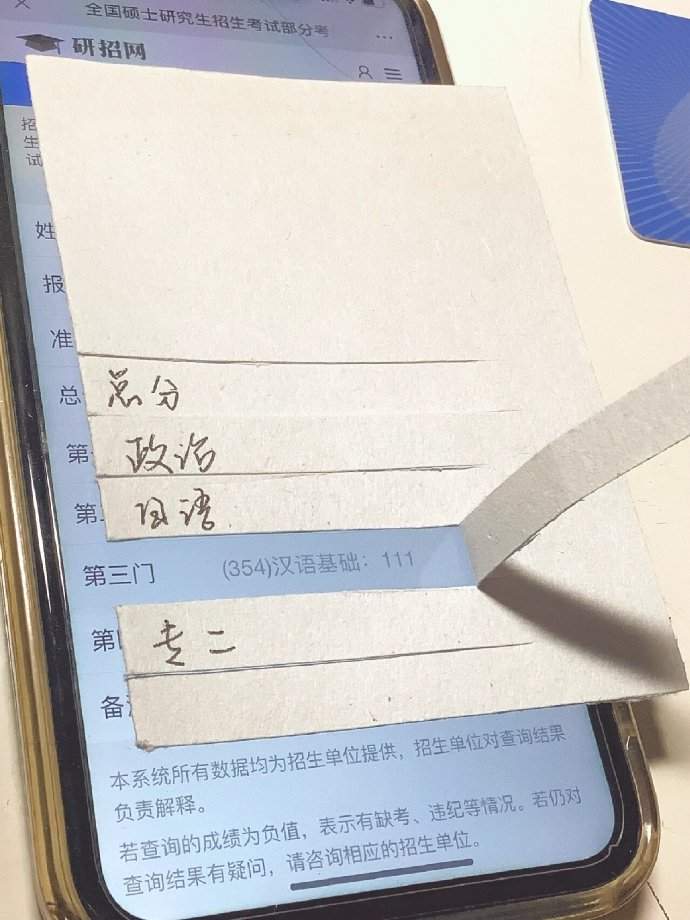 全国硕士研究生招生考试部分考
研招网
招
生
试
姓
报
准
总
总分
第
政治
第二
日语
第三门 (354)汉语基础：111
第
专二
备
本系统所有数据均为招生单位提供，招生单位对查询结果
负责解释。
若查询的成绩为负值，表示有缺考、违纪等情况。若仍对
查询结果有疑问，请咨询相应的招生单位。